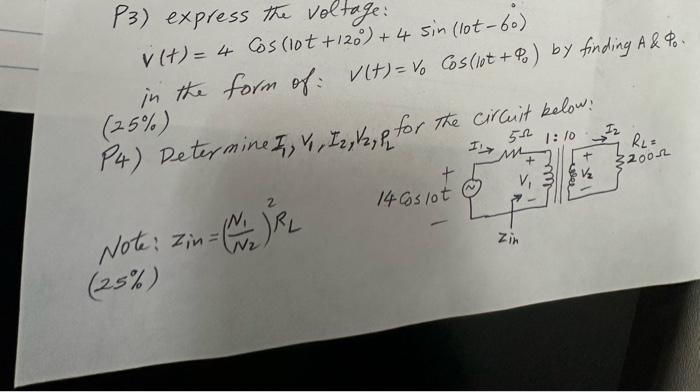 P3) express the voltage:
v(t) = 4 Cos(10t+120°) + 4 sin(10t-60°)
in the form of: V(t) = V₀ Cos(10t+Φ₀) by finding A & Φ₀.
(25%)
P4) Determine I₁, V₁, I₂, V₂, P_L for the circuit below:
I₁ → 5Ω 1:10 → I₂
+ + + R_L =
14 Cos 10t V₁ V₂ 200Ω
- - -
Zin
Note: Zin = (N₁/N₂)² R_L
(25%)